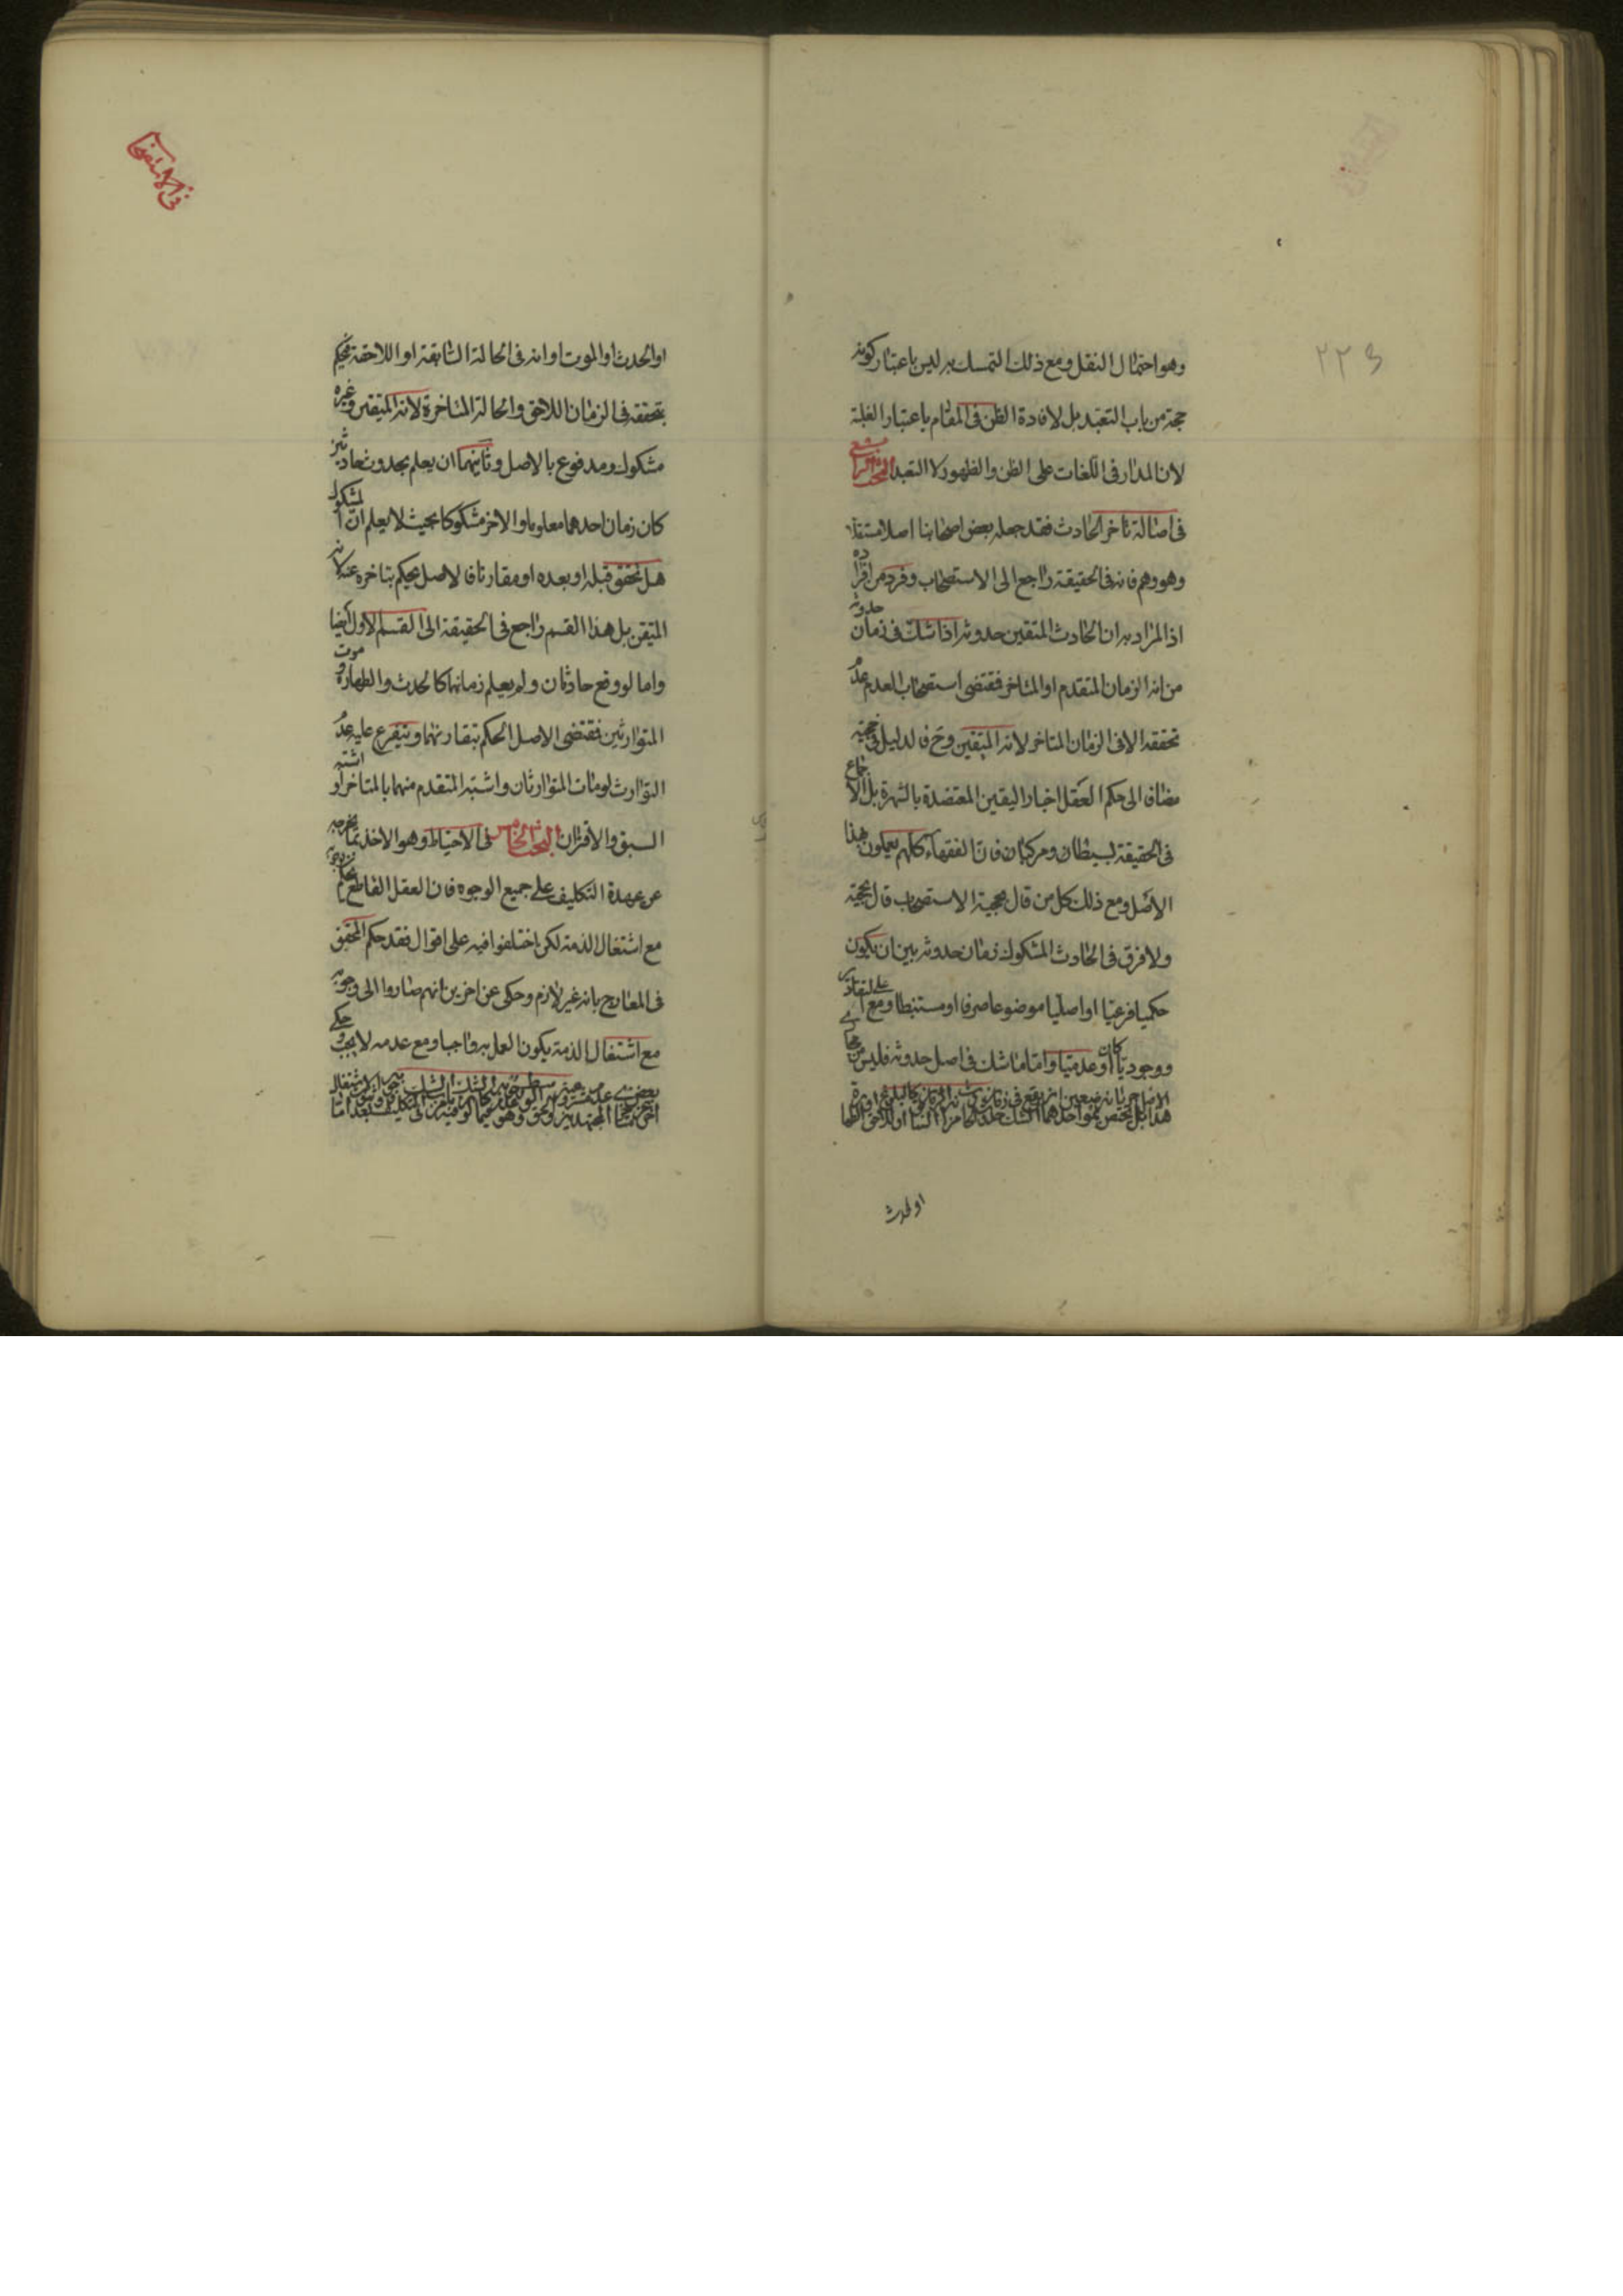 وهو احتمال النقل ومع ذلك التمسك به ليس باعتبار كونه
حجة من باب التعبد بل لافادة الظن فى المقام باعتبار الغلبة
لان المدار فى اللغات على الظن والظهور لا التعبد المبحث الرابع
فى اصالة تاخر الحادث فقد جعله بعض اصحابنا اصلا مستقلا
وهو وهم فانه فى الحقيقة راجع الى الاستصحاب وفرد من افراده
اذ المراد به ان الحادث المتقين حدوثه اذا شك فى زمان حدوثه
من انه الزمان المتقدم او المتاخر فمقتضى استصحاب العدم عدم
تحققه الا فى الزمان المتاخر لانه المتقين وح فالدليل فى حجيته
مضاف الى حكم العقل اخبار اليقين المعتضدة بالشهرة بل الاجماع
فى الحقيقة بسيطان ومركبان فان الفقهاء كلهم يعملون بهذا
الاصل ومع ذلك كل من قال بحجية الاستصحاب قال بحجيته
ولا فرق فى الحادث المشكوك زمان حدوثه بين ان يكون
حكميا فرعيا او اصليا موضوعا صرفا او مستنبطا ومع على التقادير
ووجوديا كان او عدميا واما ما شك فى اصل حدوثه فليس من
او لحدث
٢٢٤
فى الاستصحاب
او الحدث او الموت او انه فى الحالة السابقة او اللاحقة فيحكم
بتحققه فى الزمان اللاحق والحالة المتاخرة لانه المتيقن وغيره
مشكوك ومدفوع بالاصل وثانيهما ان يعلم بحدوث حادثين
كان زمان احدهما معلوما والاخر مشكوكا بحيث لا يعلم ان المشكوك
هل تحقق قبله او بعده او مقارنا فالاصل يحكم بتاخره عنه لانه
المتيقن بل هذا القسم راجع فى الحقيقة الى القسم الاول ايضا
واما لو وقع حادثان ولم يعلم زمانهما كالحدث والطهارة وموت
المتوارثين فمقتضى الاصل الحكم بتقارنهما ويتفرع عليه عدم
التوارث لو مات المتوارثان واشتبه المتقدم منهما بالمتاخر او اشتبه
السبق والاقتران المبحث الخامس فى الاحتياط وهو الاخذ بما يخرجه
عن عهدة التكليف على جميع الوجوه فان العقل القاطع يحكم بوجوبه
مع اشتغال الذمة لكن اختلفوا فيه على اقوال فقد حكم المحقق
فى المعارج بانه غير لازم وحكى عن اخرين انهم صاروا الى وجوبه
مع اشتغال الذمة يكون العمل به واجبا ومع عدمه لا يجب وحكى